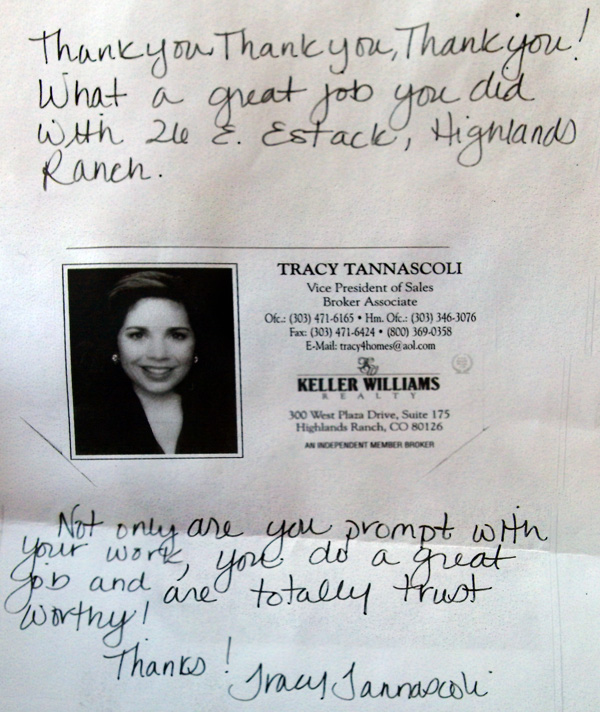 Thank you, Thank you, Thank you!
What a great job you did
with 26 E. Estack, Highlands
Ranch.
TRACY TANNASCOLI
Vice President of Sales
Broker Associate
Ofc.: (303) 471-6165 • Hm. Ofc.: (303) 346-3076
Fax: (303) 471-6424 • (800) 369-0358
E-Mail: tracy4homes@aol.com
KELLER WILLIAMS
REALTY
300 West Plaza Drive, Suite 175
Highlands Ranch, CO 80126
AN INDEPENDENT MEMBER BROKER
Not only are you prompt with
your work, you do a great
job and are totally trust
worthy!
Thanks! Tracy Tannascoli